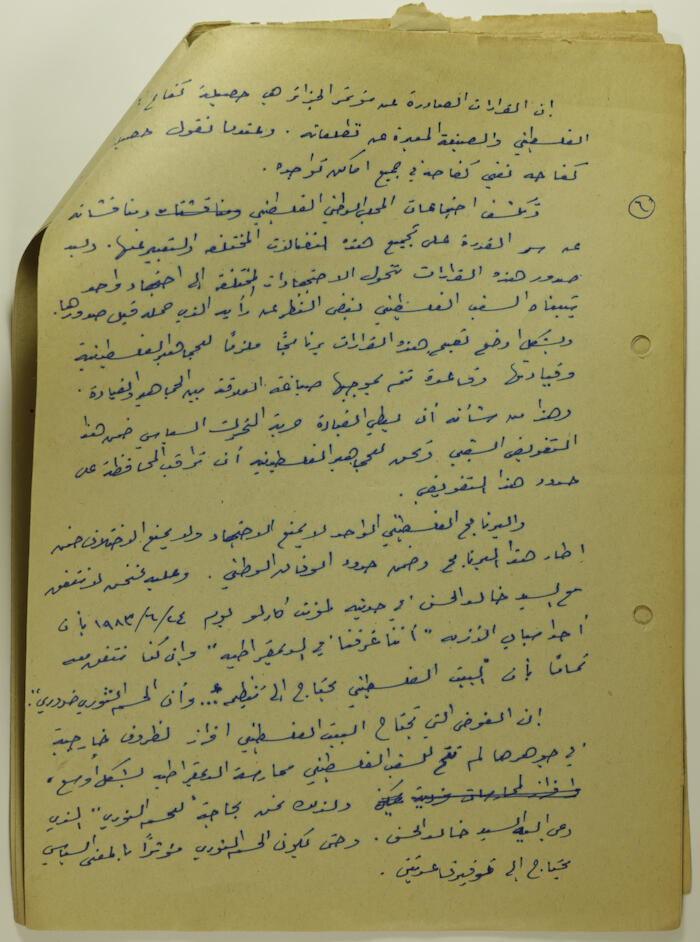 ان القرارات الصادرة عن مؤتمر الجزائر هي حصيلة كفاح
الفلسطيني والصيغة المعبرة عن تطلعاته . وعندما نقول حصيـ
كفاحه نعني كفاحه في جميع اماكن تواجده .
٦
وتكشف اجتماعات المجلس الوطني الفلسطيني ومناقشات ومناقشاته
عن سر القدرة على تجميع هذه النضالات المختلفة والتعبير عنها . وبعد
صدور هذه القرارات تتحول الاجتهادات المختلفة إلى اجتهاد واحد
يتبناه الشعب الفلسطيني بغض النظر عن رأيه الذي حمله قبل صدورها .
وبشكل اوضح تصبح هذه القرارات برنامجًا ملزمًا للجماهير الفلسطينية
وقيادتها وقاعدة تتم بموجبها صياغة العلاقة بين الجماهير والقيادة .
وهذا من شأنه أن يعطي القيادة حرية التحرك السياسي ضمن هذا
التفويض الشعبي ويحق للجماهير الفلسطينية أن تراقب المحافظة على
حدود هذا التفويض .
والبرنامج الفلسطيني الواحد لا يمنع الاجتهاد ولا يمنع الاختلاف ضمن
اطار هذا البرنامج وضمن حدود الوفاق الوطني . وعليه فنحن لا نتفق
مع السيد خالد الحسن في حديثه لمونت كارلو يوم ٢٤/٦/١٩٨٣ بأن
أحد اسباب الأزمة "أننا غرقنا في الديمقراطية" وإن كنا نتفق معه
تمامًا بأن "البيت الفلسطيني يحتاج إلى تنظيم ... وأن الحسم الثوري ضروري".
ان الفوضى التي تجتاح البيت الفلسطيني افراز لظروف خارجية
في جوهرها لم تتح للشعب الفلسطيني ممارسة الديمقراطية بشكل أوسع ،
وافراز لممارسات فردية ولذلك نحن بحاجة "للحسم الثوري" الذي
دعى اليه السيد خالد الحسن . وحتى يكون الحسم الثوري مؤثرًا بالمعنى السياسي
يحتاج إلى توفير قاعدتين .